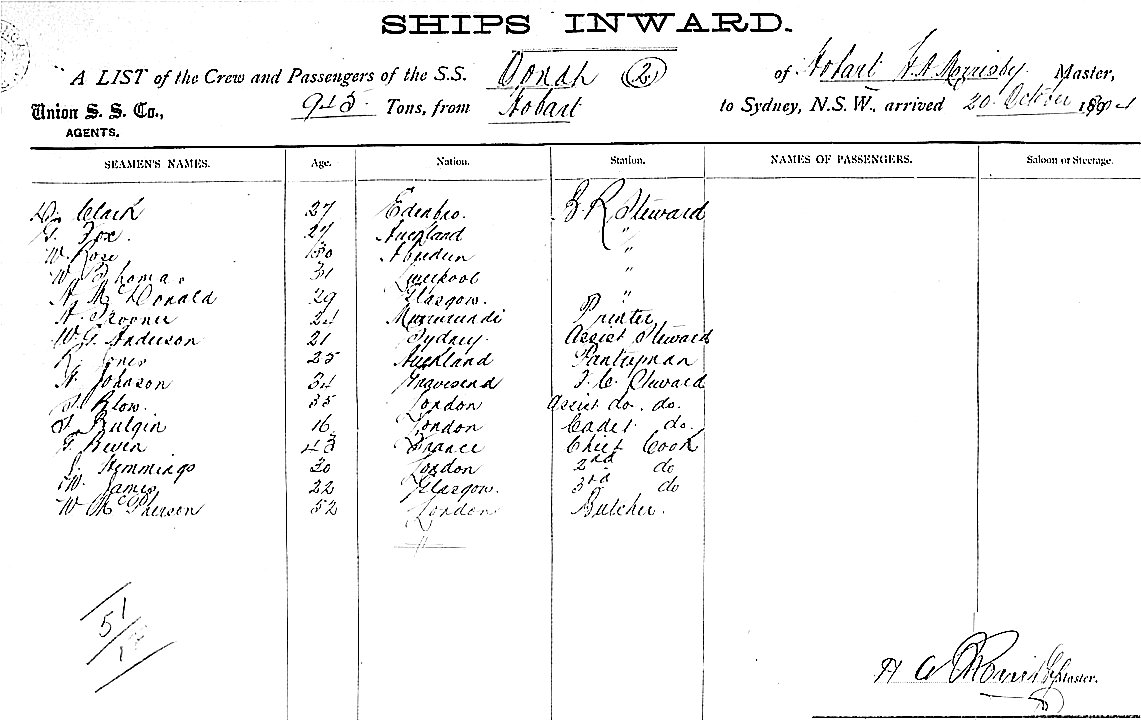 SHIPS INWARD.
A LIST of the Crew and Passengers of the S.S. Oonah (2) of Hobart Morrisby Master,
Union S. S. Co., 945 Tons, from Hobart to Sydney, N.S.W., arrived 20 October 189
AGENTS.
SEAMEN'S NAMES. Age. Nation. Station. NAMES OF PASSENGERS. Saloon or Steerage.
Clark 27 Edenbro. Steward
Fox. 27 Auckland "
W. Rose 30 Aberdeen "
W. Thomas 31 Liverpool "
A. McDonald 29 Glasgow. "
24 Murrurundi Printer
W. G. Anderson 21 Sydney. Assist Steward
R. Jones 25 Auckland Pantryman
A. Johnson 34 Gravesend Steward
Blow. 35 London Assist do. do.
Bulgin 16 London Cadet do.
43 France Chief Cook
J. Hemmings 30 London 2nd do
W. James 22 Glasgow. 3rd do
W McPherson 52 London Butcher.
51
Master.